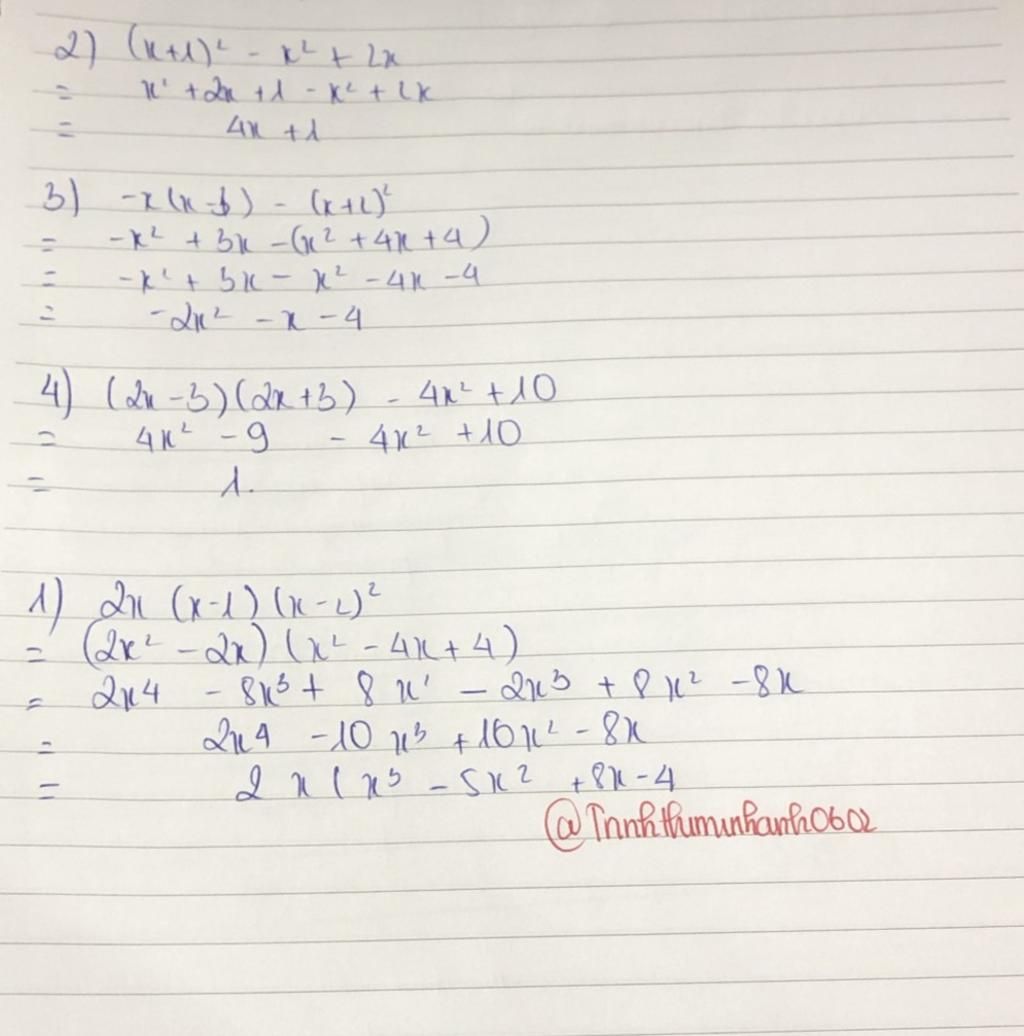 2) (x+1)² - x² + 2x
= x² + 2x + 1 - x² + 2x
= 4x + 1
3) -x(x-3) - (x+2)²
= -x² + 3x - (x² + 4x + 4)
= -x² + 3x - x² - 4x - 4
= -2x² - x - 4
4) (2x-3)(2x+3) - 4x² + 10
= 4x² - 9 - 4x² + 10
= 1.
1) 2x (x-1) (x-2)²
= (2x² - 2x) (x² - 4x + 4)
= 2x4 - 8x³ + 8x² - 2x³ + 8x² - 8x
= 2x4 - 10x³ + 16x² - 8x
= 2x(x³ - 5x² + 8x - 4
@Trinhthiminhanh0602